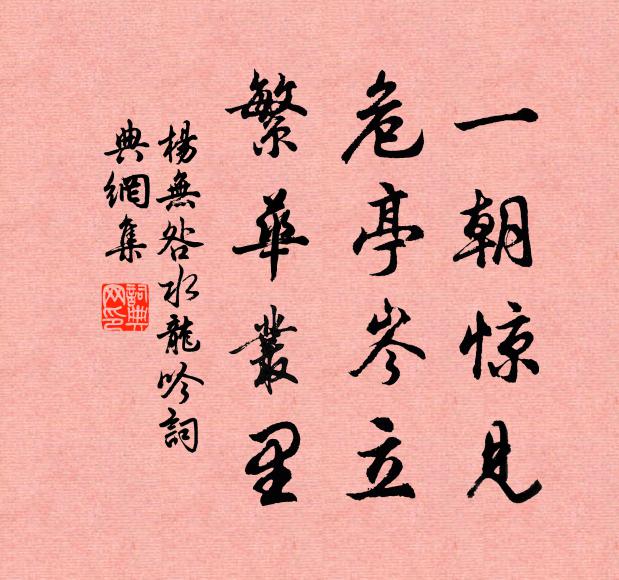 一朝惊見
危亭岑立
繁華叢里
楊無咎水龍吟詞
典網集
詞典网印